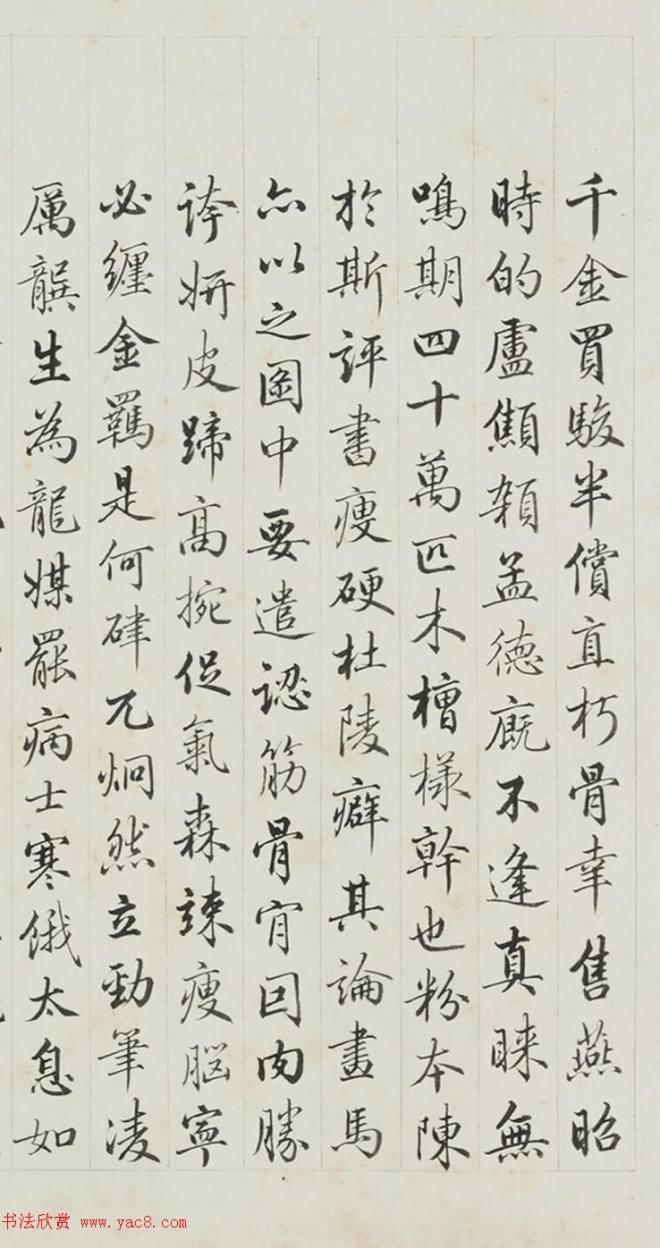 千金買駿半償直朽骨幸售燕昭
時的盧顦顇孟德廄不逢真睞無
鳴期四十萬匹木槽樣幹也粉本陳
於斯評書瘦硬杜陵癖其論畫馬
亦以之圖中要遣認筋骨宵回肉勝
誇妍皮蹄高捥促氣森竦瘦腦寧
必纏金羈是何硉兀炯然立勁筆凌
厲龔生為龍媒罷病士寒餓太息如
书法欣赏 www.yac8.com